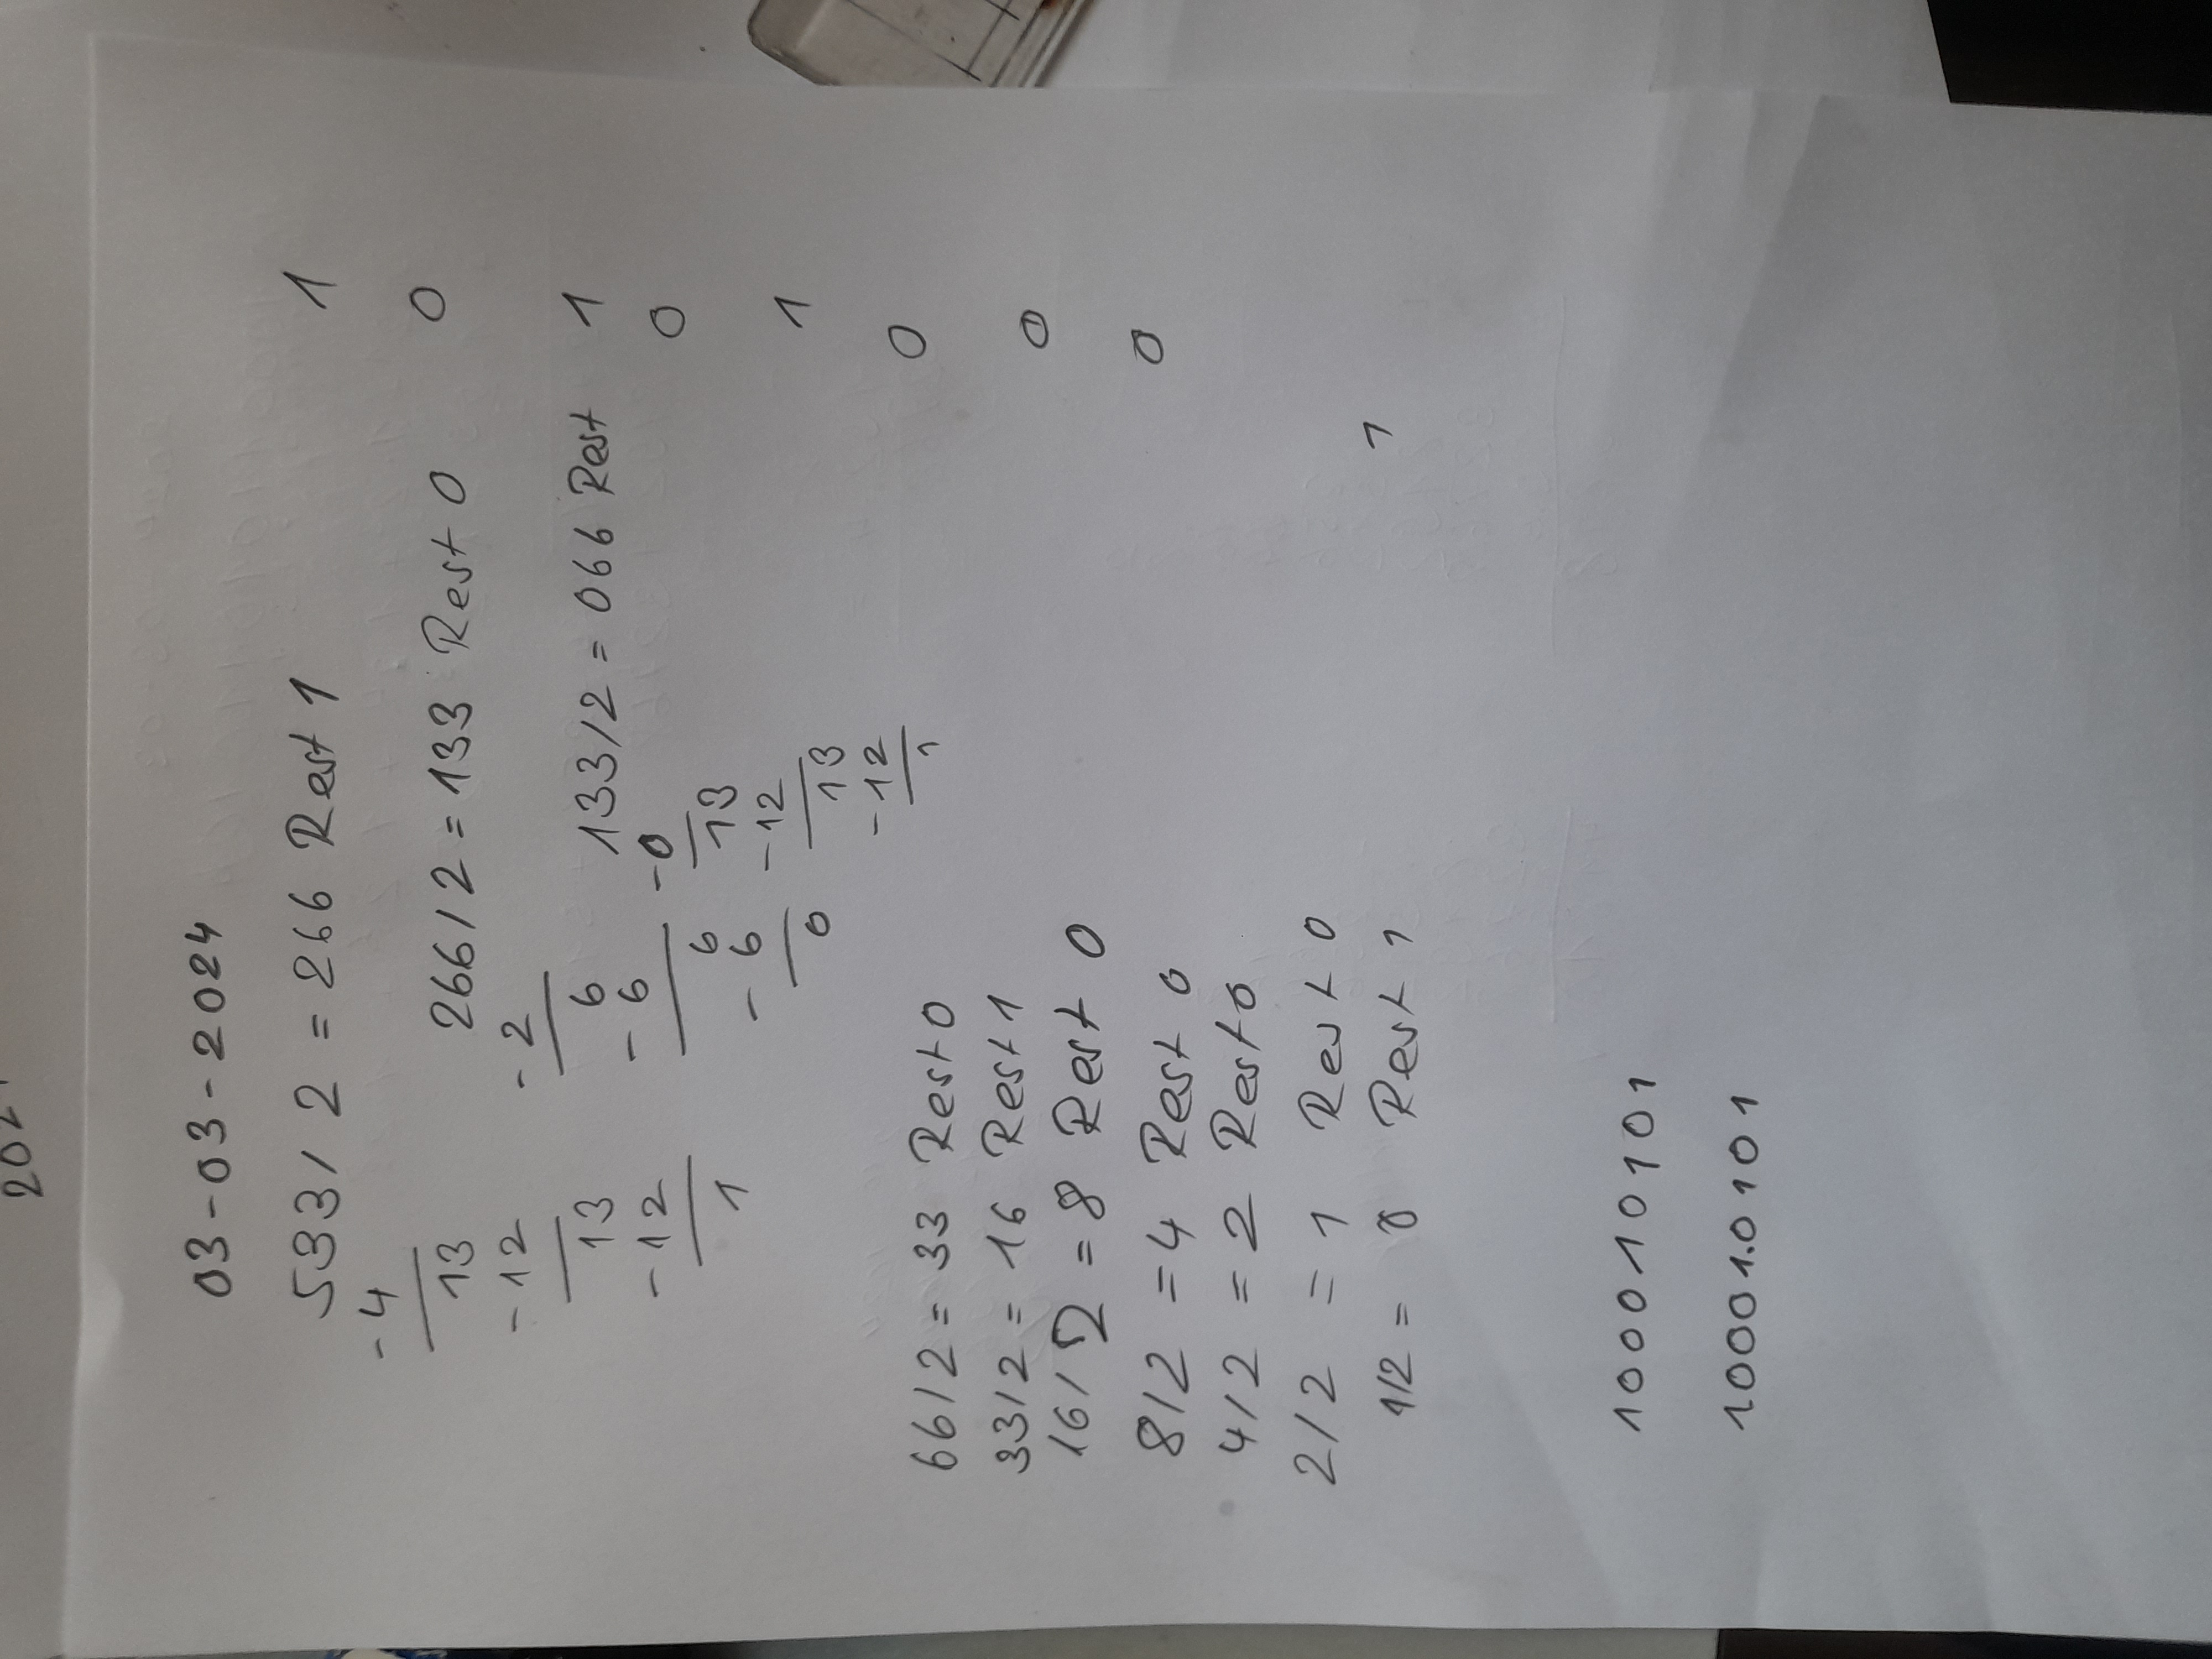 202
03-03-2024
533/2 = 266 Rest 1 1
-4
13 266/2 = 133 Rest 0 0
-12 -2
13 6 133/2 = 066 Rest 1
-12 -6 -0 0
1 6 13
-6 -12 1
0 13
-12
1
66/2 = 33 Rest 0 0
33/2 = 16 Rest 1
16/2 = 8 Rest 0 0
8/2 = 4 Rest 0 0
4/2 = 2 Rest 0
2/2 = 1 Rest 0
1/2 = 0 Rest 1 1
1000 10 101
1000 1.0 101